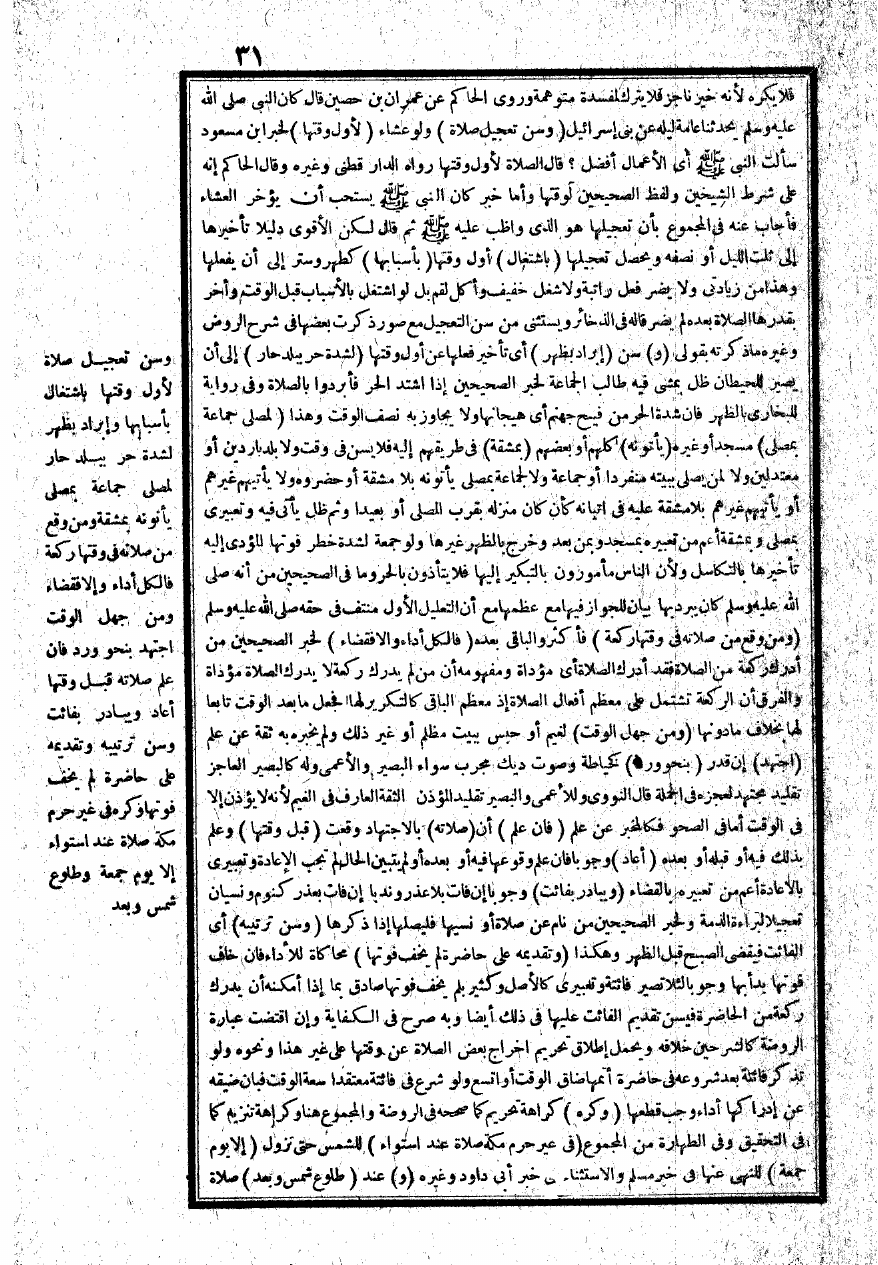 ٣١
فلا يكره لأنه خيز ناجز فلا يترك لمفسدة متوهمة وروى الحاكم عن عمران بن حصين قال كان النبي صلى الله
عليه وسلم يحدثنا عامة ليله عن بنى إسرائيل (وسن تعجيل صلاة) ولو عشاء (لأول وقتها) لخبر ابن مسعود
سألت النبي ﷺ أى الأعمال أفضل ؟ قال الصلاة لأول وقتها رواه الدار قطنى وغيره وقال الحاكم إنه
على شرط الشيخين ولفظ الصحيحين لوقتها وأما خبر كان النبي ﷺ يستحب أن يؤخر العشاء
فأجاب عنه فى المجموع بأن تعجيلها هو الذى واظب عليه ﷺ ثم قال لكن الأقوى دليلا تأخيرها
إلى ثلث الليل أو نصفه ويحصل تعجيلها (باشتغال) أول وقتها (بأسبابها) كطهر وستر إلى أن يفعلها
وهذا من زيادتى ولا يضر فعل راتبة ولا شغل خفيف وأكل لقم بل لو اشتغل بالأسباب قبل الوقت وأخر
بقدرها الصلاة بعده لم يضر قاله فى الذخائر ويستثنى من سن التعجيل مع صور ذكرت بعضها فى شرح الروض
وغيره ما ذكرته بقولى (و) سن (إبراد بظهر) أى تأخير فعلها عن أول وقتها (لشدة حر ببلد حار) إلى أن
يصير للحيطان ظل يمشى فيه طالب الجماعة لخبر الصحيحين إذا اشتد الحر فأبردوا بالصلاة وفى رواية
للبخارى بالظهر فان شدة الحر من فيح جهنم أى هيجانها ولا يجاوز به نصف الوقت وهذا (لمصلى جماعة
بمصلى) مسجد أو غيره (يأتونه) كلهم أو بعضهم (بمشقة) فى طريقهم إليه فلا يسن فى وقت ولا بلد باردين أو
معتدلين ولا لمن يصلى ببيته منفردا أو جماعة ولا لجماعة بمصلى يأتونه بلا مشقة أو حضروه ولا يأتيهم غيرهم
أو يأتيهم غيرهم بلا مشقة عليه فى اتيانه كأن كان منزله بقرب المصلى أو بعيدا وثم ظل يأتى فيه وتعبيرى
بمصلى وبمشقة أعم من تعبيره بمسجد ومن بعد وخرج بالظهر غيرها ولو جمعة لشدة خطر فوتها المؤدى إليه
تأخيرها بالتكاسل ولأن الناس مأمورون بالتبكير إليها فلا يتأذون بالحر وما فى الصحيحين من أنه صلى
الله عليه وسلم كان يبرد بها بيان للجواز فيها مع عظمها مع أن التعليل الأول منتف فى حقه صلى الله عليه وسلم
(ومن وقع من صلاته فى وقتها ركعة) فأكثر والباقى بعده (فالكل أداء والا فقضاء) لخبر الصحيحين من
أدرك ركعة من الصلاة فقد أدرك الصلاة أى مؤداة ومفهومه أن من لم يدرك ركعة لا يدرك الصلاة مؤداة
والفرق أن الركعة تشتمل على معظم أفعال الصلاة إذ معظم الباقى كالتكرير لها فجعل ما بعد الوقت تابعا
لها بخلاف ما دونها (ومن جهل الوقت) لغيم أو حبس ببيت مظلم أو غير ذلك ولم يخبره به ثقة عن علم
(اجتهد) إن قدر (بنحو ورد) كخياطة وصوت ديك مجرب سواء البصير والأعمى وله كالبصير العاجز
تقليد مجتهد لعجزه فى الجملة قال النووى وللأعمى والبصير تقليد المؤذن الثقة العارف فى الغيم لأنه لا يؤذن إلا
فى الوقت أما فى الصحو فكالمخبر عن علم (فان علم) أن (صلاته) بالاجتهاد وقعت (قبل وقتها) وعلم
بذلك فيه أو قبله أو بعده (أعاد) وجوبا فان علم وقوعها فيه أو بعده أو لم يتبين الحال لم تجب الإعادة وتعبيرى
بالأعادة أعم من تعبيره بالقضاء (ويبادر بفائت) وجوبا إن فات بلا عذر وندبا إن فات بعذر كنوم ونسيان
تعجيلا لبراءة الذمة ولخبر الصحيحين من نام عن صلاة أو نسيها فليصلها إذا ذكرها (وسن ترتيبه) أى
الفائت فيقضى الصبح قبل الظهر وهكذا (وتقديمه على حاضرة لم يخف فوتها) محاكاة للأداء فان خاف
فوتها بدأ بها وجوبا لئلا تصير فائتة وتعبيرى كالأصل وكثير بلم يخف فوتها صادق بما إذا أمكنه أن يدرك
ركعة من الحاضرة فيسن تقديم الفائت عليها فى ذلك أيضا وبه صرح فى الكفاية وإن اقتضت عبارة
الروضة كالشرحين خلافه ويحمل إطلاق تحريم اخراج بعض الصلاة عن وقتها على غير هذا ونحوه ولو
تذكر فائتة بعد شروعه فى حاضرة أتمها ضاق الوقت أو اتسع ولو شرع فى فائتة معتقدا سعة الوقت فبان ضيقه
عن إدراكها أداء وجب قطعها (وكره) كراهة تحريم كما صححه فى الروضة والمجموع هنا وكراهة تنزيه كما
فى التحقيق وفى الطهارة من المجموع (فى غير حرم مكة صلاة عند استواء) للشمس حتى تزول (إلا يوم
جمعة) للنهى عنها فى خبر مسلم والاستثناء فى خبر أبى داود وغيره (و) عند (طلوع شمس وبعد) صلاة
وسن تعجيل صلاة
لأول وقتها باشتغال
بأسبابها وإبراد بظهر
لشدة حر ببلد حار
لمصلى جماعة بمصلى
يأتونه بمشقة ومن وقع
من صلاته فى وقتها ركعة
فالكل أداء وإلا فقضاء
ومن جهل الوقت
اجتهد بنحو ورد فان
علم صلاته قبل وقتها
أعاد ويبادر بفائت
وسن ترتيبه وتقديمه
على حاضرة لم يخف
فوتها وكره فى غير حرم
مكة صلاة عند استواء
إلا يوم جمعة وطلوع
شمس وبعد